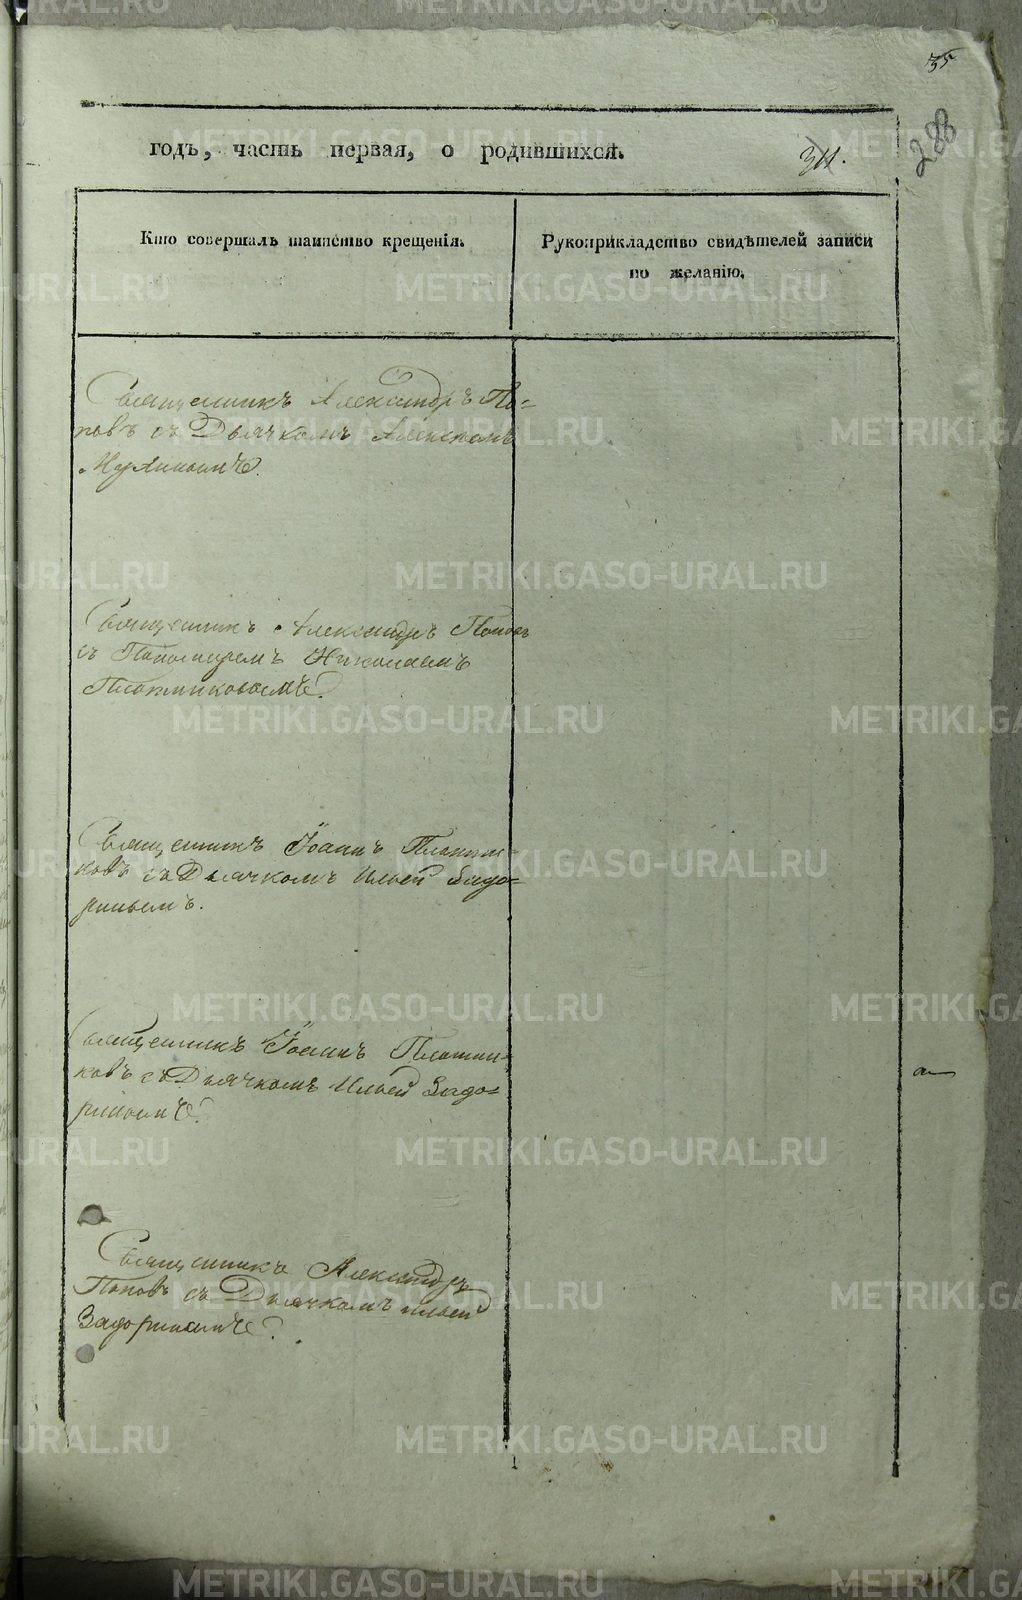 35
288
годъ, часть первая, о родившихся.
34.
Кто совершалъ таинство крещенія.
Рукоприкладство свидѣтелей записи
по желанію.
Священникъ Александръ По-
повъ съ Дьячкомъ Алексѣемъ
Священникъ Александръ Поповъ
съ Пономаремъ Николаемъ
Плотниковымъ.
Священникъ Іоаннъ Плотни-
ковъ съ Дьячкомъ Ильей Задо-
ринымъ.
Священникъ Іоаннъ Плотни-
ковъ съ Дьячкомъ Ильей Задо-
ринымъ.
Священникъ Александръ
Поповъ съ Дьячкомъ Ильей
Задоринымъ.
METRIKI.GASO-URAL.RU